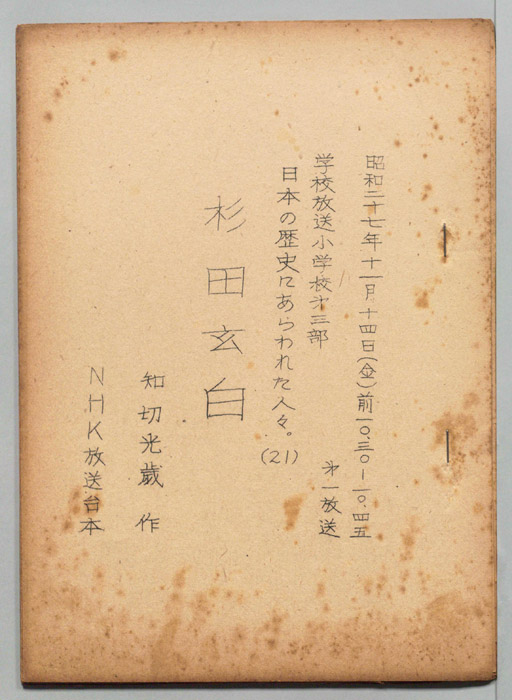 昭和二十七年十一月十四日(金)前一〇.三〇-一〇.四五
第一放送
学校放送小学校第三部
日本の歴史にあらわれた人々。
(21)
杉田玄白
知切光歳 作
NHK放送台本